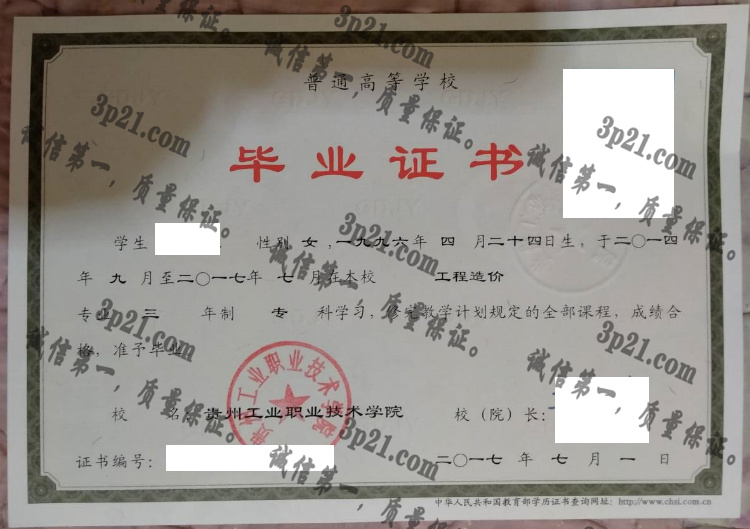 普通高等学校
毕业证书
学生 性别 女 ,一九九六年 四 月二十四日生，于二〇一四
年 九 月至二〇一七年 七 月在本校 工程造价
专业 三 年制 专 科学习，修完教学计划规定的全部课程，成绩合
格，准予毕业
校 名：贵州工业职业技术学院 校（院）长：
证书编号： 二〇一七 年 七 月 一 日
中华人民共和国教育部学历证书查询网址：http://www.chsi.com.cn
贵州工业职业技术学院
3p21.com
诚信第一，质量保证。
3p21.com
诚信第一，质量保证。
3p21.com
诚信第一，质量保证。
3p21.com
诚信第一，质量保证。
3p21.com
诚信第一，质量保证。
3p21.com
诚信第一，质量保证。
3p21.com
诚信第一，质量保证。